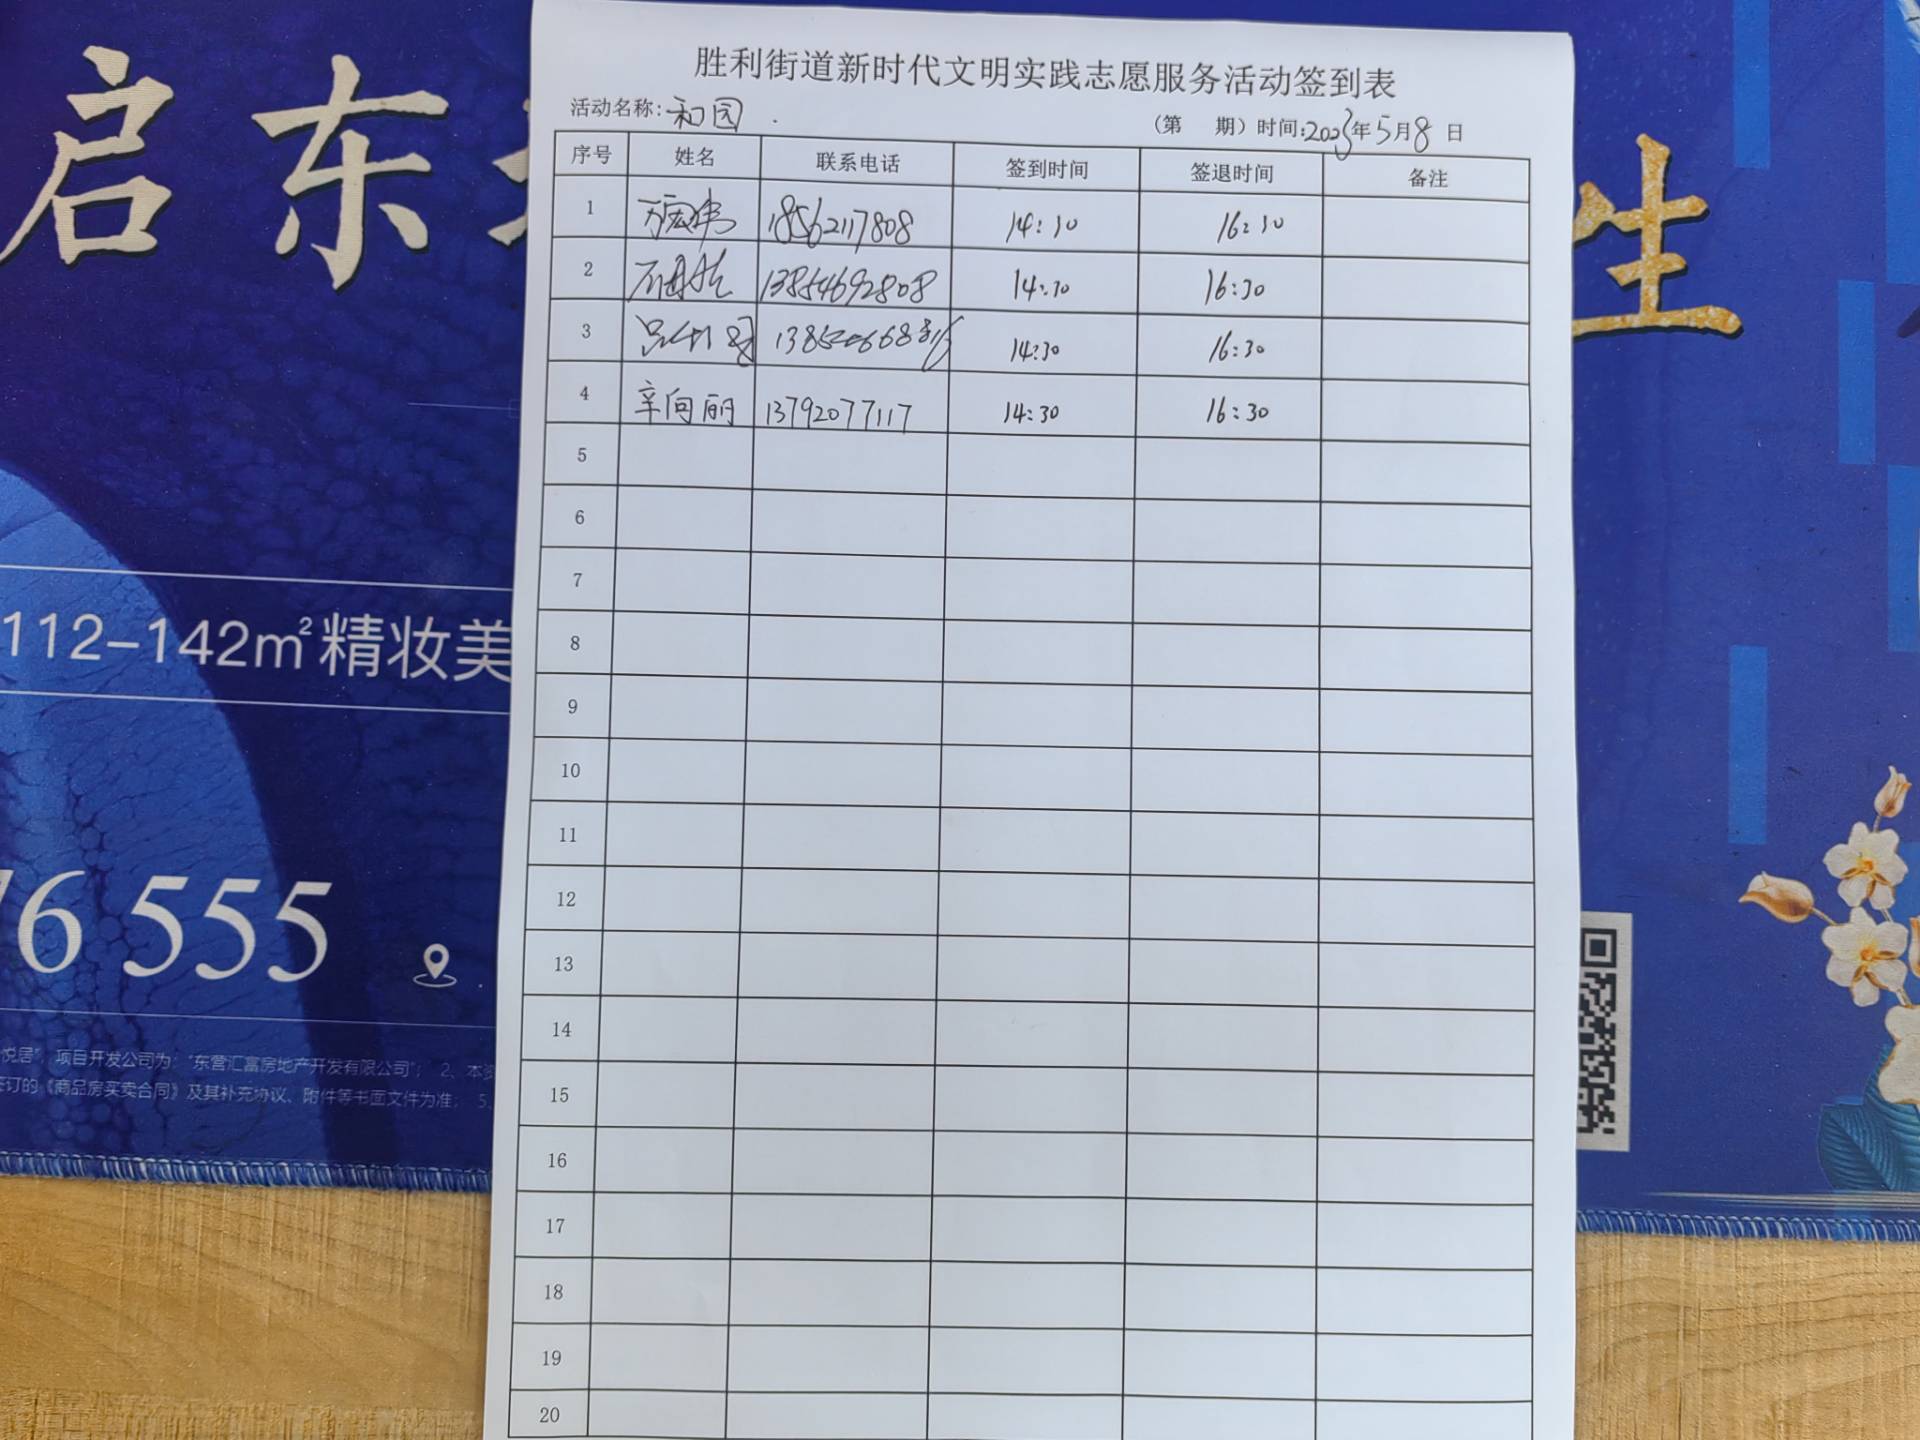 启东
生
112-142㎡精妆美
16 555
悦居"，项目开发公司为："东营汇富房地产开发有限公司"； 2、本资
签订的《商品房买卖合同》及其补充协议、附件等书面文件为准； 5、
胜利街道新时代文明实践志愿服务活动签到表
活动名称：和园 （第 期）时间：2023年5月8日
序号 姓名 联系电话 签到时间 签退时间 备注
1 18562117808 14:30 16:30
2 13854692808 14:30 16:30
3 14:30 16:30
4 辛向丽 13792077117 14:30 16:30
5
6
7
8
9
10
11
12
13
14
15
16
17
18
19
20